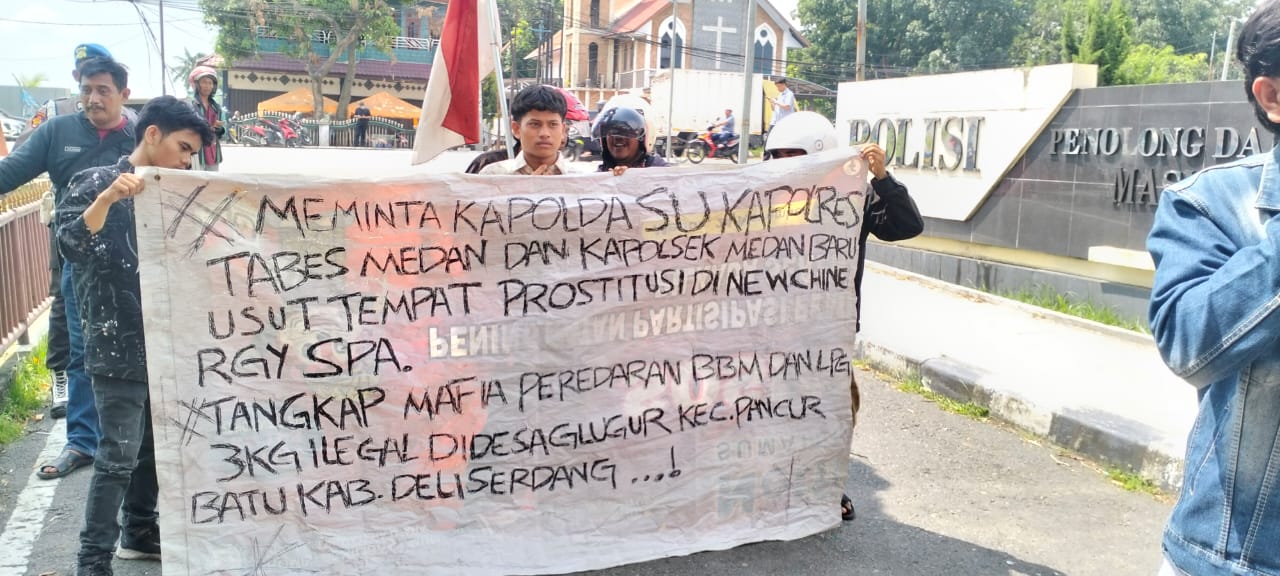 POLISI
PENOLONG DA
MAS
# MEMINTA KAPOLDA SU KAPOLRES
TABES MEDAN DAN KAPOLSEK MEDAN BARU
USUT TEMPAT PROSTITUSI DI NEW CHINE
RGY SPA.
# TANGKAP MAFIA PEREDARAN BBM DAN LPG
3KG ILEGAL DIDESA GLUGUR KEC. PANCUR
BATU KAB. DELI SERDANG ....!